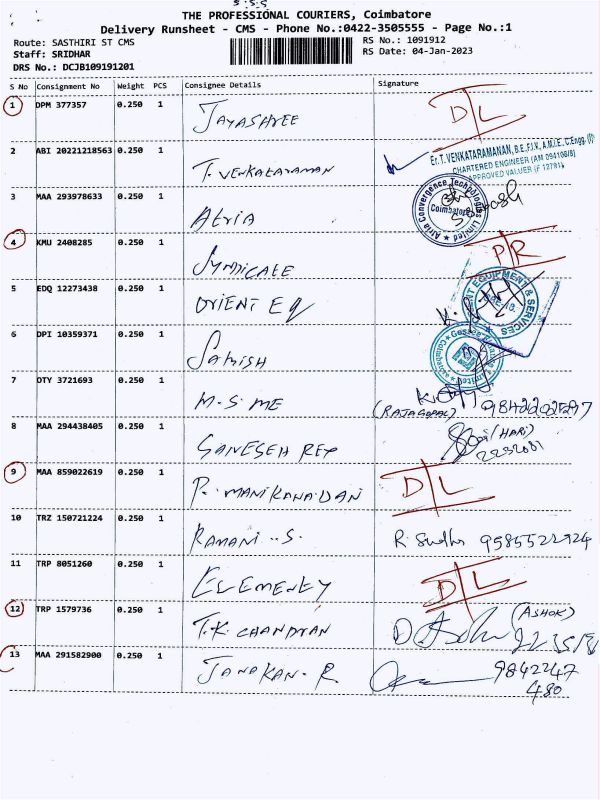 THE PROFESSIONAL COURIERS, Coimbatore
Delivery Runsheet - CMS - Phone No.:0422-3505555 - Page No.:1
Route: SASTHIRI ST CMS RS No.: 1091912
Staff: SRIDHAR RS Date: 04-Jan-2023
DRS No.: DCJB109191201
S No Consignment No Weight PCS Consignee Details Signature
1 DPM 377357 0.250 1 JAYASHREE D L
2 ABI 20221218563 0.250 1 T. VENKATARAMAN
Er.T.VENKATARAMANAN, B.E,F.I.V, A.M.I.E, C.Engg.(I)
CHARTERED ENGINEER (AM 094106/8)
APPROVED VALUER (F 12781)
3 MAA 293978633 0.250 1 Atria
Atria Convergence Technologies Limited
Coimbatore
4 KMU 2408285 0.250 1 SYNDICATE P R
5 EDQ 12273438 0.250 1 ORIENT EQ
EQUIPMENT & SERVICES
6 DPI 10359371 0.250 1 SATHISH
7 OTY 3721693 0.250 1 M.S. ME (RAJAGOPAL)
8 MAA 294438405 0.250 1 GANESEH REP (HARI)
9 MAA 859022619 0.250 1 P. MANIKANADAN D L
10 TRZ 150721224 0.250 1 RAMANI..S. R. Sudha 9585522924
11 TRP 8051260 0.250 1 ELEMENEY D L
12 TRP 1579736 0.250 1 T.K. CHANDRAN (ASHOK)
13 MAA 291582900 0.250 1 JANAKAN. R. 9842247
480